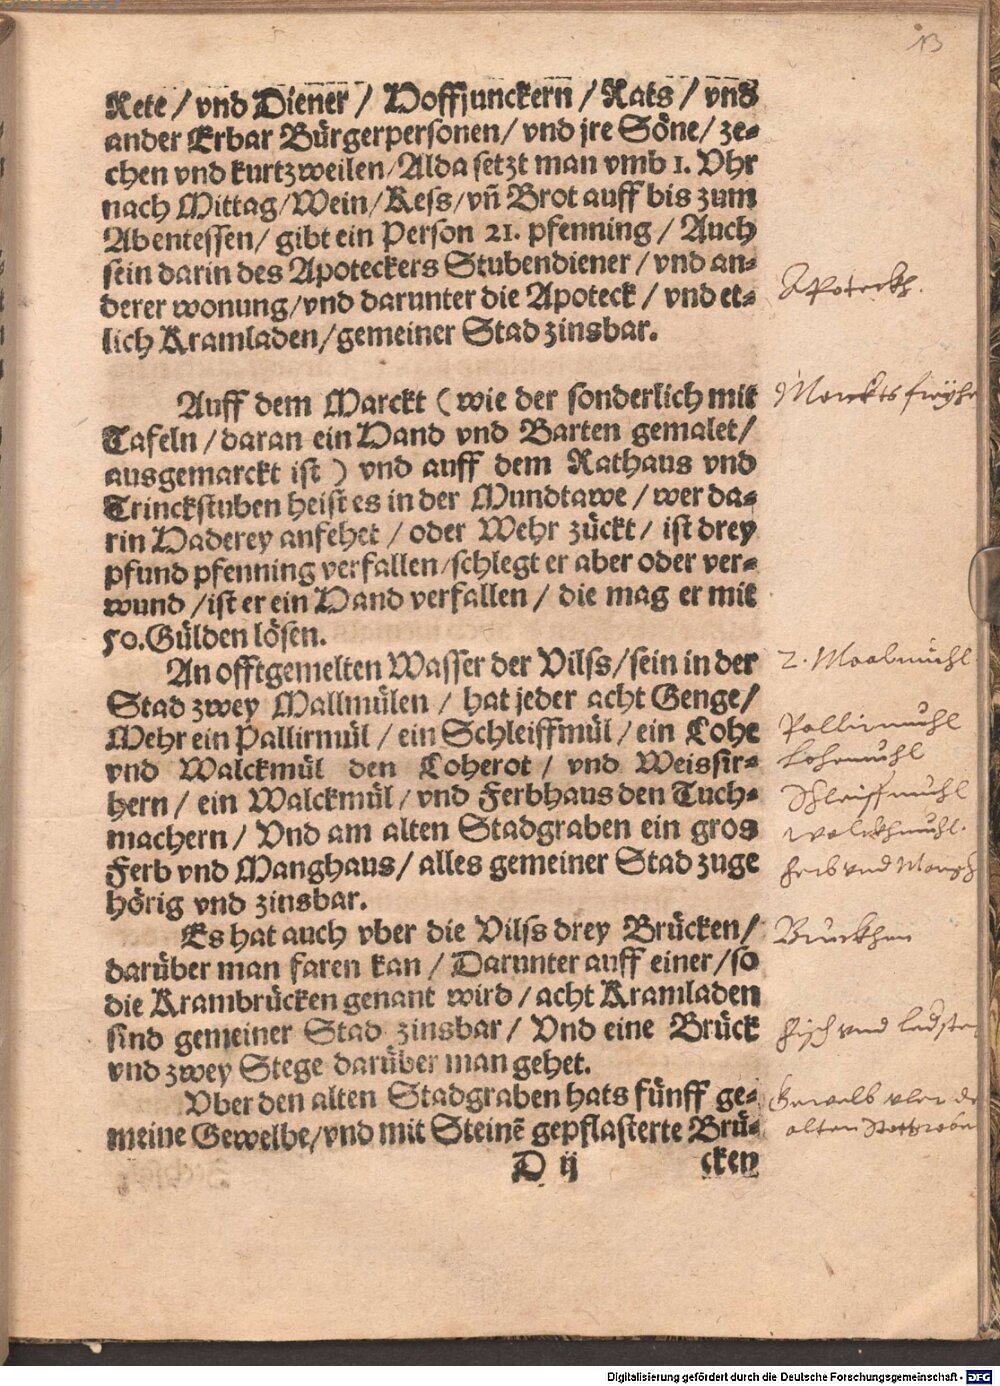 13
Rete / vnd Diener / Hoffjunckern / Rats / vnd
ander Erbar Bürgerpersonen / vnd jre Söne / ze-
chen vnd kurtzweilen / Alda setzt man vmb 1. Vhr
nach Mittag / Wein / Kess / vn̄ Brot auff bis zum
Abentessen / gibt ein Person 21. pfenning / Auch
sein darin des Apoteckers Stubendiener / vnd an-
derer wonung / vnd darunter die Apoteck / vnd et-
lich Kramladen / gemeiner Stad zinsbar.
Apoteckh.
Auff dem Marckt ( wie der sonderlich mit
Tafeln / daran ein Hand vnd Barten gemalet /
ausgemarckt ist ) vnd auff dem Rathaus vnd
Trinckstuben heist es in der Mundtawe / wer da-
rin Haderey anfehet / oder Wehr zückt / ist drey
pfund pfenning verfallen / schlegt er aber oder ver-
wund / ist er ein Hand verfallen / die mag er mit
50. Gülden lösen.
Marckts freyhe
An offtgemelten Wasser der Vilss / sein in der
Stad zwey Mallmülen / hat jeder acht Genge /
Mehr ein Pallirmül / ein Schleiffmül / ein Lohe
vnd Walckmül den Loherot / vnd Weissir-
hern / ein Walckmül / vnd Ferbhaus den Tuch-
machern / Vnd am alten Stadgraben ein gros
Ferb vnd Manghaus / alles gemeiner Stad zuge
hörig vnd zinsbar.
2. Maalmühl
Pallirmuhl
Lohemuhl
Schleiffmuhl
Walckhmuhl.
Ferb vnd Mangh
Es hat auch vber die Vilss drey Brücken /
darüber man faren kan / Darunter auff einer / so
die Krambrücken genant wird / acht Kramladen
sind gemeiner Stad zinsbar / Vnd eine Brück
vnd zwey Stege darüber man gehet.
Bruckhen
vnd
Vber den alten Stadgraben hats fünff ge-
meine Gewelbe / vnd mit Steinē gepflasterte Brü-
Gewelb vber de
alten
D ij cken
Digitalisierung gefördert durch die Deutsche Forschungsgemeinschaft - DFG